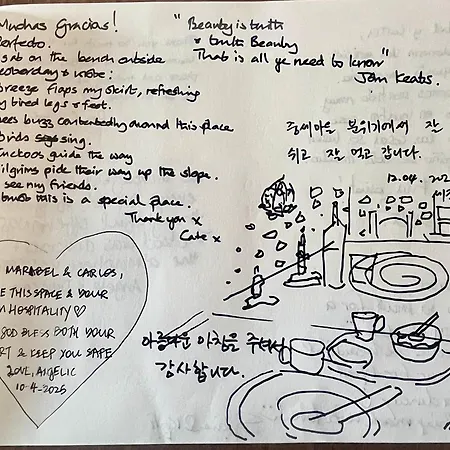 Muchas Gracias!
Perfecto.
I sat on the bench outside
yesterday & wrote:
breeze flaps my skirt, refreshing
my tired legs & feet.
bees buzz contentedly around this place
birds sing.
cuckoos guide the way
pilgrims pick their way up the slope.
I see my friends.
this is a special place.
Thank you x
Cate x
"Beauty is truth
& truth Beauty
That is all ye need to know"
John Keats.
쉬고 잘 먹고 갑니다.
12.04.202
MARABEL & CARLOS,
THIS SPACE & YOUR
HOSPITALITY♡
GOD BLESS BOTH YOUR
& KEEP YOU SAFE
LOVE, ANGELIC
10-4-2025
아름다운 아침을 주셔서
감사합니다.